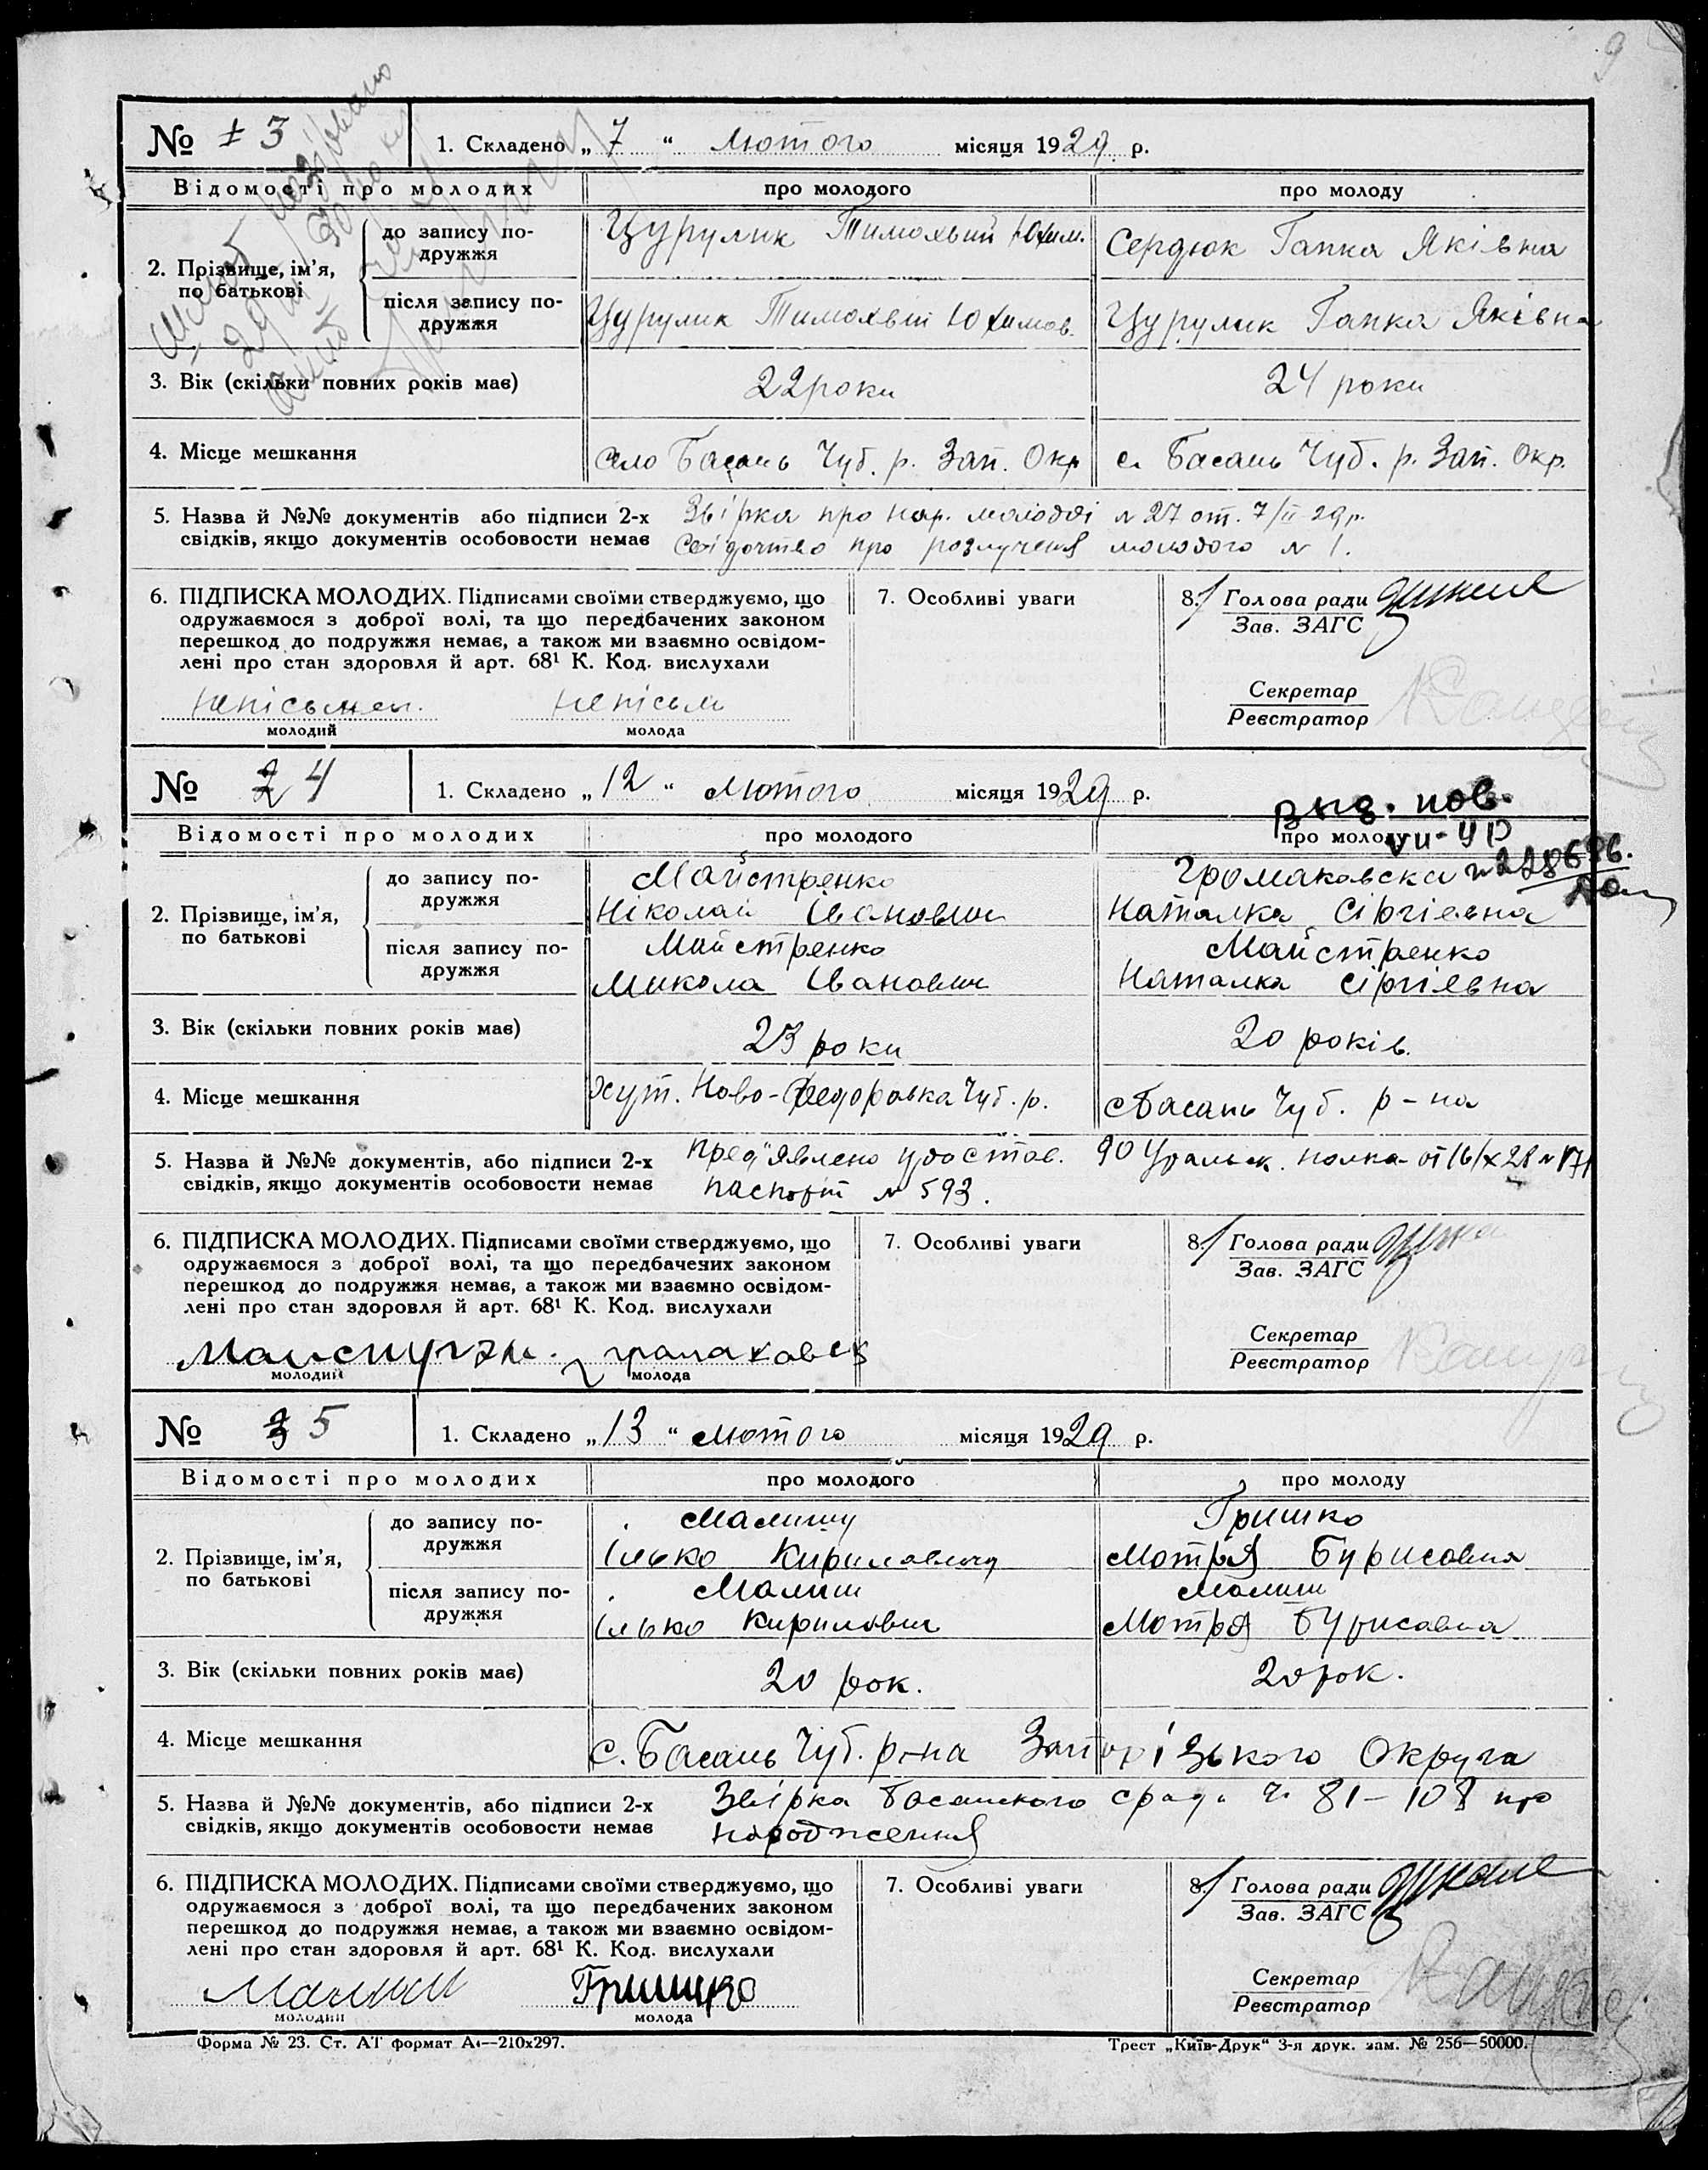 9
№ 3 1. Складено „7“ лютого місяця 1929 р.
Відомості про молодих про молодого про молоду
2. Прізвище, ім’я, по батькові
до запису подружжя Цурулик Тимохвій Юхим. Сердюк Гапка Яківна
після запису подружжя Цурулик Тимохвій Юхимов. Цурулик Гапка Яківна
3. Вік (скільки повних років має) 22 роки 24 роки
4. Місце мешкання село Басань Чуб. р. Зап. Окр с. Басань Чуб. р. Зап. Окр.
5. Назва й №№ документів або підписи 2-х Звірка про нар. молодої № 27 от. 7/II 29 р.
свідків, якщо документів особовости немає Свідочтво про розлучення молодого № 1.
6. ПІДПИСКА МОЛОДИХ. Підписами своїми стверджуємо, що
одружаємося з доброї волі, та що передбачених законом
перешкод до подружжя немає, а також ми взаємно освідом-
лені про стан здоровля й арт. 68¹ К. Код. вислухали
непісьмен. непісьм
молодий молода
7. Особливі уваги
8. Голова ради
Зав. ЗАГС
Секретар
Реєстратор
№ 4 1. Складено „12“ лютого місяця 1929 р.
выд. пов.
Відомості про молодих про молодого про молоду
VII-УР
№ 228696.
2. Прізвище, ім’я, по батькові
до запису подружжя
Майстренко Громаковска
Ніколай Іванович Наталка Сіргіевна
після запису подружжя
Майстренко Майстренко
Микола Іванович Наталка Сіргіевна
3. Вік (скільки повних років має) 23 роки 20 років.
4. Місце мешкання хут. Ново-Федоровка Чуб. р. с Басань Чуб. р-на
5. Назва й №№ документів, або підписи 2-х пред"явлено удостов. 90 Уральск. полка от 16/X 28 № 171
свідків, якщо документів особовости немає паспорт № 593.
6. ПІДПИСКА МОЛОДИХ. Підписами своїми стверджуємо, що
одружаємося з доброї волі, та що передбачених законом
перешкод до подружжя немає, а також ми взаємно освідом-
лені про стан здоровля й арт. 68¹ К. Код. вислухали
молодий молода
7. Особливі уваги
8. Голова ради
Зав. ЗАГС
Секретар
Реєстратор
№ 5 1. Складено „13“ лютого місяця 1929 р.
Відомості про молодих про молодого про молоду
2. Прізвище, ім’я, по батькові
до запису подружжя
Малишу Гришко
Ілько Кирилович Мотря Бурисовна
після запису подружжя
Малиш Малиш
Ілько Кирилович Мотря Бурисовна
3. Вік (скільки повних років має) 20 рок. 20 рок.
4. Місце мешкання с. Басань Чуб. р-на Запорізького Округа
5. Назва й №№ документів, або підписи 2-х Звірка Басанского срад. Ч. 81–108 про
свідків, якщо документів особовости немає народження
6. ПІДПИСКА МОЛОДИХ. Підписами своїми стверджуємо, що
одружаємося з доброї волі, та що передбачених законом
перешкод до подружжя немає, а також ми взаємно освідом-
лені про стан здоровля й арт. 68¹ К. Код. вислухали
Малиш Гришко
молодий молода
7. Особливі уваги
8. Голова ради
Зав. ЗАГС
Секретар
Реєстратор
Форма № 23. Ст. АТ формат А4—210х297. Трест „Київ-Друк“ 3-я друк. зам. № 256—50000.